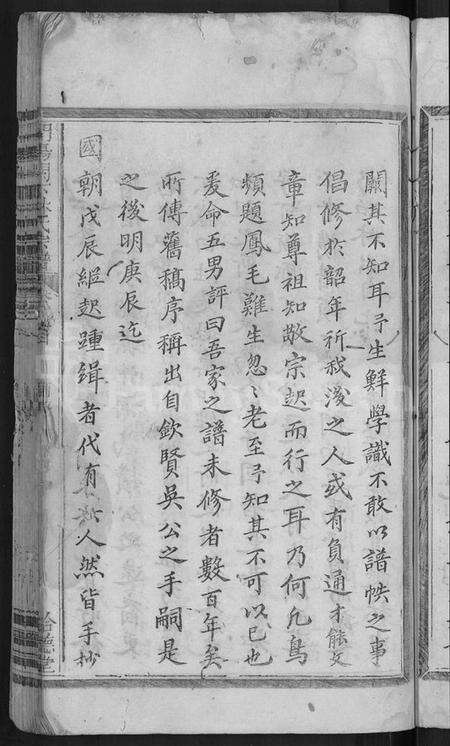 闕其不知耳予生鮮學識不敢以譜帙之事
倡修於韶年祈我後之人或有負通才能文
章知尊祖知敬宗起而行之耳乃何凡鳥
頻題鳳毛難生忽〻老至予知其不可以已也
爰命五男評曰吾家之譜未修者數百年矣
所傳舊稿序稱出自欽賢吳公之手嗣是
之後明庚辰迄
國朝戊辰繼起踵緝者代有人然皆手抄